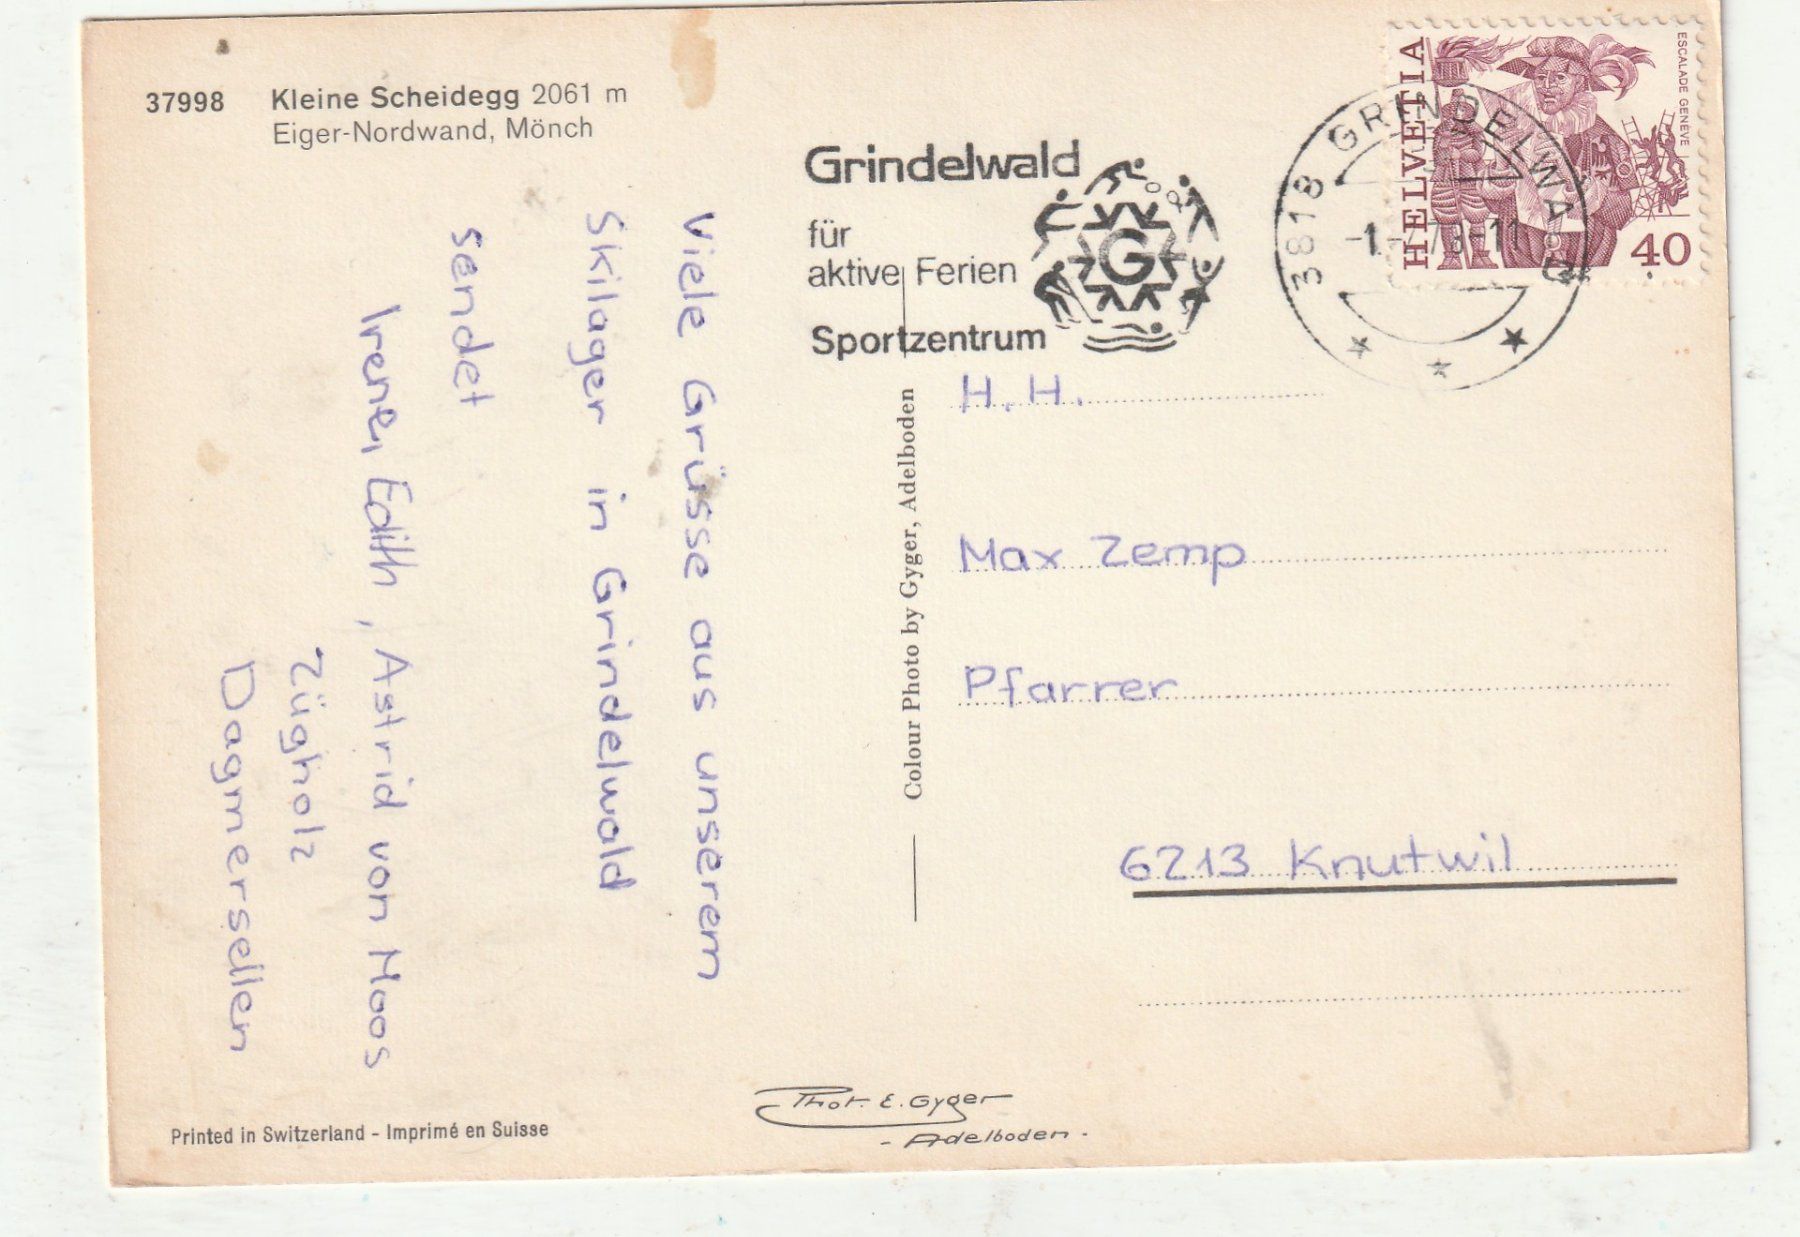 37998 Kleine Scheidegg 2061 m
Eiger-Nordwand, Mönch
Viele Grüsse aus unserem
Skilager in Grindelwald
sendet
Irene, Edith, Astrid von Moos
Zügholz
Dagmersellen
Printed in Switzerland - Imprimé en Suisse
Grindelwald
für
aktive Ferien
Sportzentrum
G
3818 GRINDELWALD
-1. -11
HELVETIA
ESCALADE GENÈVE
40
Colour Photo by Gyger, Adelboden
H. H.
Max Zemp
Pfarrer
6213 Knutwil
Phot. E. Gyger
- Adelboden -